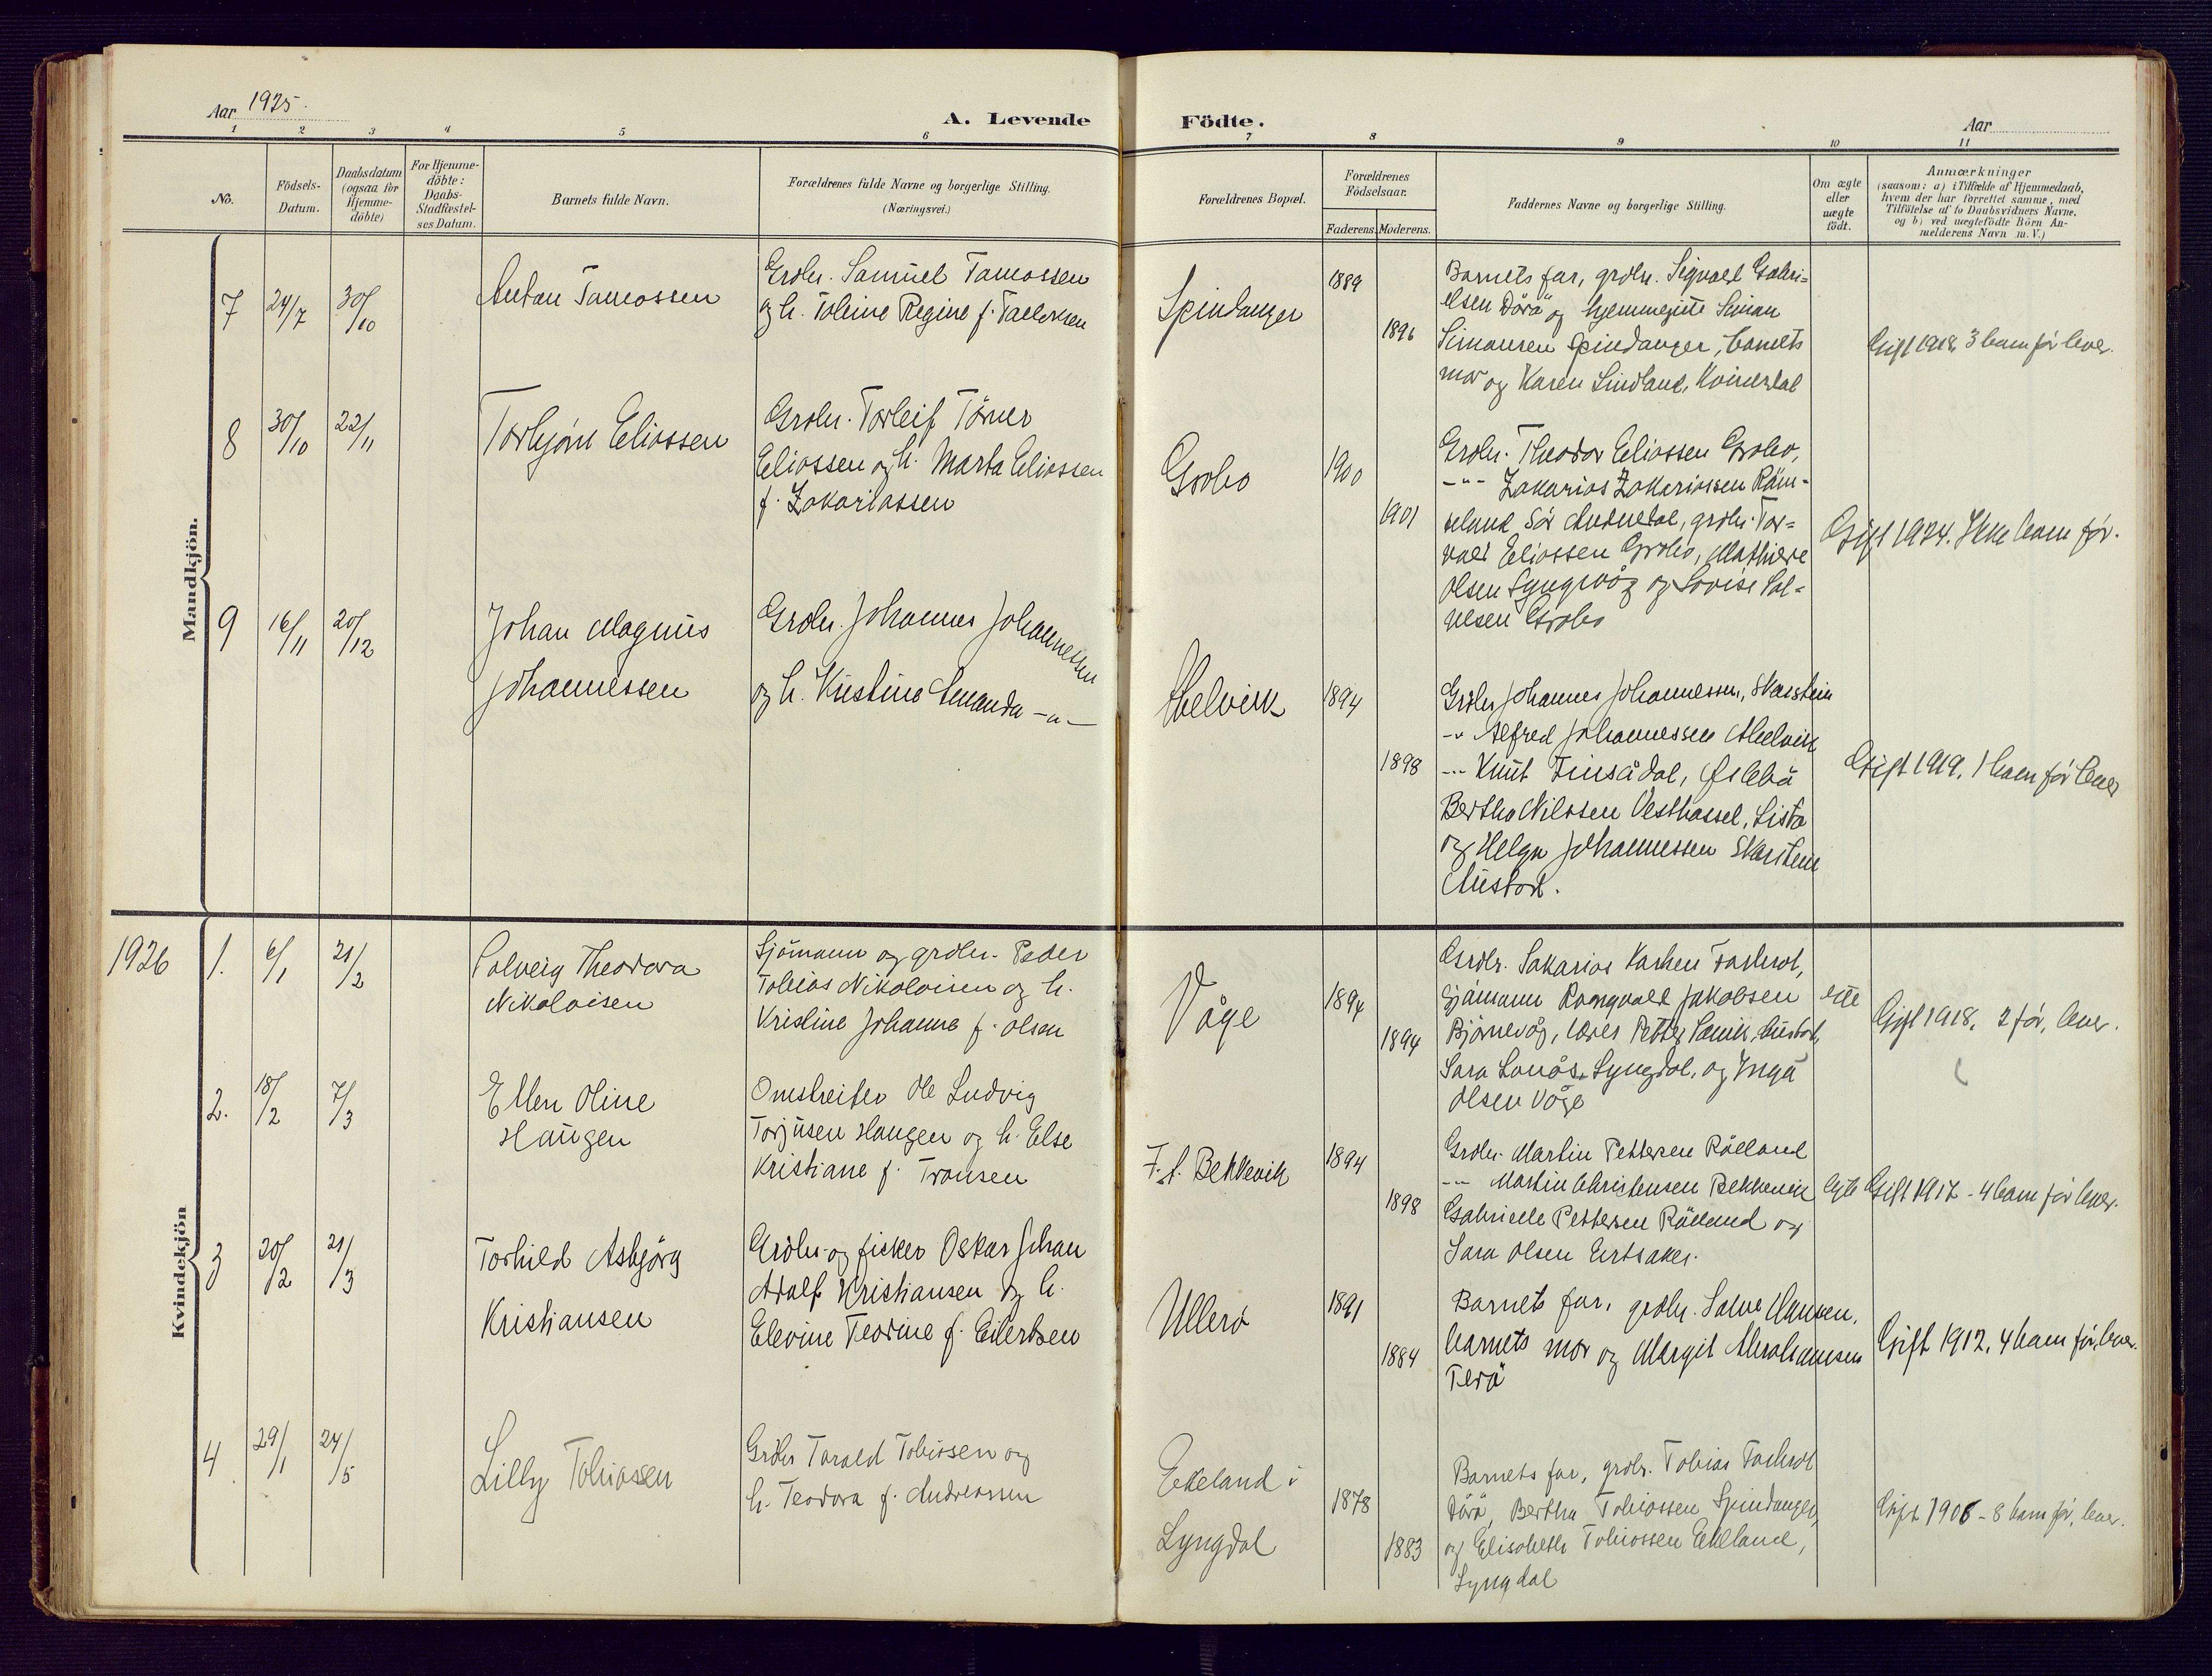 Aar 1925.
A. Levende Födte.
Aar
1 2 3 4 5 6 7 8 9 10 11
No.
Födsels-
Datum.
Daabsdatum
(ogsaa for
Hjemme-
döbte)
For Hjemme-
döbte:
Daabs-
Stadfæstel-
ses Datum.
Barnets fulde Navn.
Forældrenes fulde Navne og borgerlige Stilling.
(Næringsvei.)
Forældrenes Bopæl.
Forældrenes
Födselsaar.
Faderens. Moderens.
Faddernes Navne og borgerlige Stilling.
Om ægte
eller
uægte
födt.
Anmærkninger
(saasom: a) i Tilfælde af Hjemmedaab,
hvem der har forrettet samme, med
Tilföielse af to Daabsvidners Navne.
og b) ved uægtefödte Börn An-
melderens Navn m. V.)
Mandkjön.
7
24/7
30/10
Anton Tamossen
Grdbr. Samuel Tamossen
og h. Toline Regine f.
Spindanger
1889
1896
Barnets far, grdbr. Sigvald Gabri-
elsen Dårå og hjemmegutt Simon
Simonsen Spindanger, barnets
mor og Karen Lindland, Kvinesdal
Gift 1918, 3 barn før lever.
8
30/10
22/11
Torbjørn Eliassen
Grdbr. Torleif Tørner
Eliassen og h. Marta Eliassen
f. Zakariassen
Grobo
1900
1901
Grdbr. Theodor Eliassen Grobo,
-"- Zakarias Zakariassen Råm-
sland, Sør Audnedal, grdbr. Tor-
vald Eliassen Grobo, Mathilde
Olsen Lyngsvåg og Lovise Sal-
vesen Grobo
Gift 1924. Ikke barn før.
9
16/11
20/12
Johan Magnus
Johannessen
Grdbr. Johannes Johannessen
og h. Kristine Amanda -"-
1894
1898
Grdbr. Johannes Johannessen, Skarstein
-"- Alfred Johannessen
-"- Knut Finsådal,
Bertha Nilssen Vesthassel, Lista
og Helga Johannessen Skarstein
Austad.
Gift 1919. 1 barn før lever
1926
Kvindekjön
1.
6/1
21/2
Solveig Theodora
Nikolaisen
Sjømann og grdbr. Peder
Tobias Nikolaisen og h.
Kristine Johanne f. Olsen
Våge
1894
1894
Grdbr. Sakarias
Sjømann Ragnvald Jakobsen
Bjørnevåg, Petter Austad,
Sara Lyngdal, og Inga
Olsen Våge
ekte
Gift 1918, 2 før, lever.
2.
18/2
7/3
Ellen Oline
Haugen
Ole Ludvig
Torjusen Haugen og h. Else
Kristiane f. Tronsen
F.f. Bekkevik
1894
1898
Grdbr. Martin Pettersen Rålland
-"- Martin Christensen Bekkevik
Gabrielle Pettersen Rålland og
Sara Olsen Ertsaker.
Gift 1917 - 4 barn før lever.
3
20/2
21/3
Torhild Asbjörg
Kristiansen
Grdbr. og fisker Oskar Johan
Adolf Kristiansen og h.
Elevine Teodine f. Eilertsen
Ullerø
1891
1884
Barnets far, grdbr. Salve Hansen,
barnets mor og Margit Abrahamsen
Terö
Gift 1912, 4 barn før, lever.
4
29/1
24/5
Lilly Tobiassen
Grdbr. Tarald Tobiassen og
h. Teodora f. Andreassen
Eikeland i
Lyngdal
1878
1883
Barnets far, grdbr. Tobias
Dårå, Bertha Tobiassen Spindanger,
og Elisabeth Tobiassen Eikeland,
Lyngdal
Gift 1906 - 8 barn før, lever.